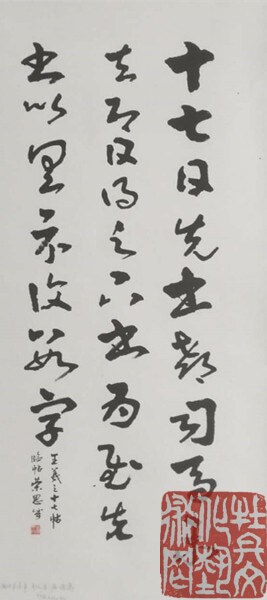 十七日先書郗司馬未
去即日得足下書為慰先
書以具示復數字
王羲之十七帖
臨帖